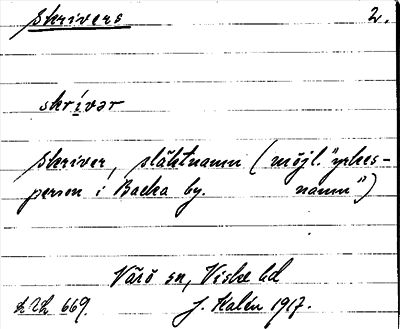 Skrivers 2.
skrívər
Skriver, släktnamn (möjl. "yrkes-
person i Backa by. namn")
Värö sn, Viske hd
LUL 669. J. Kalén 1917.